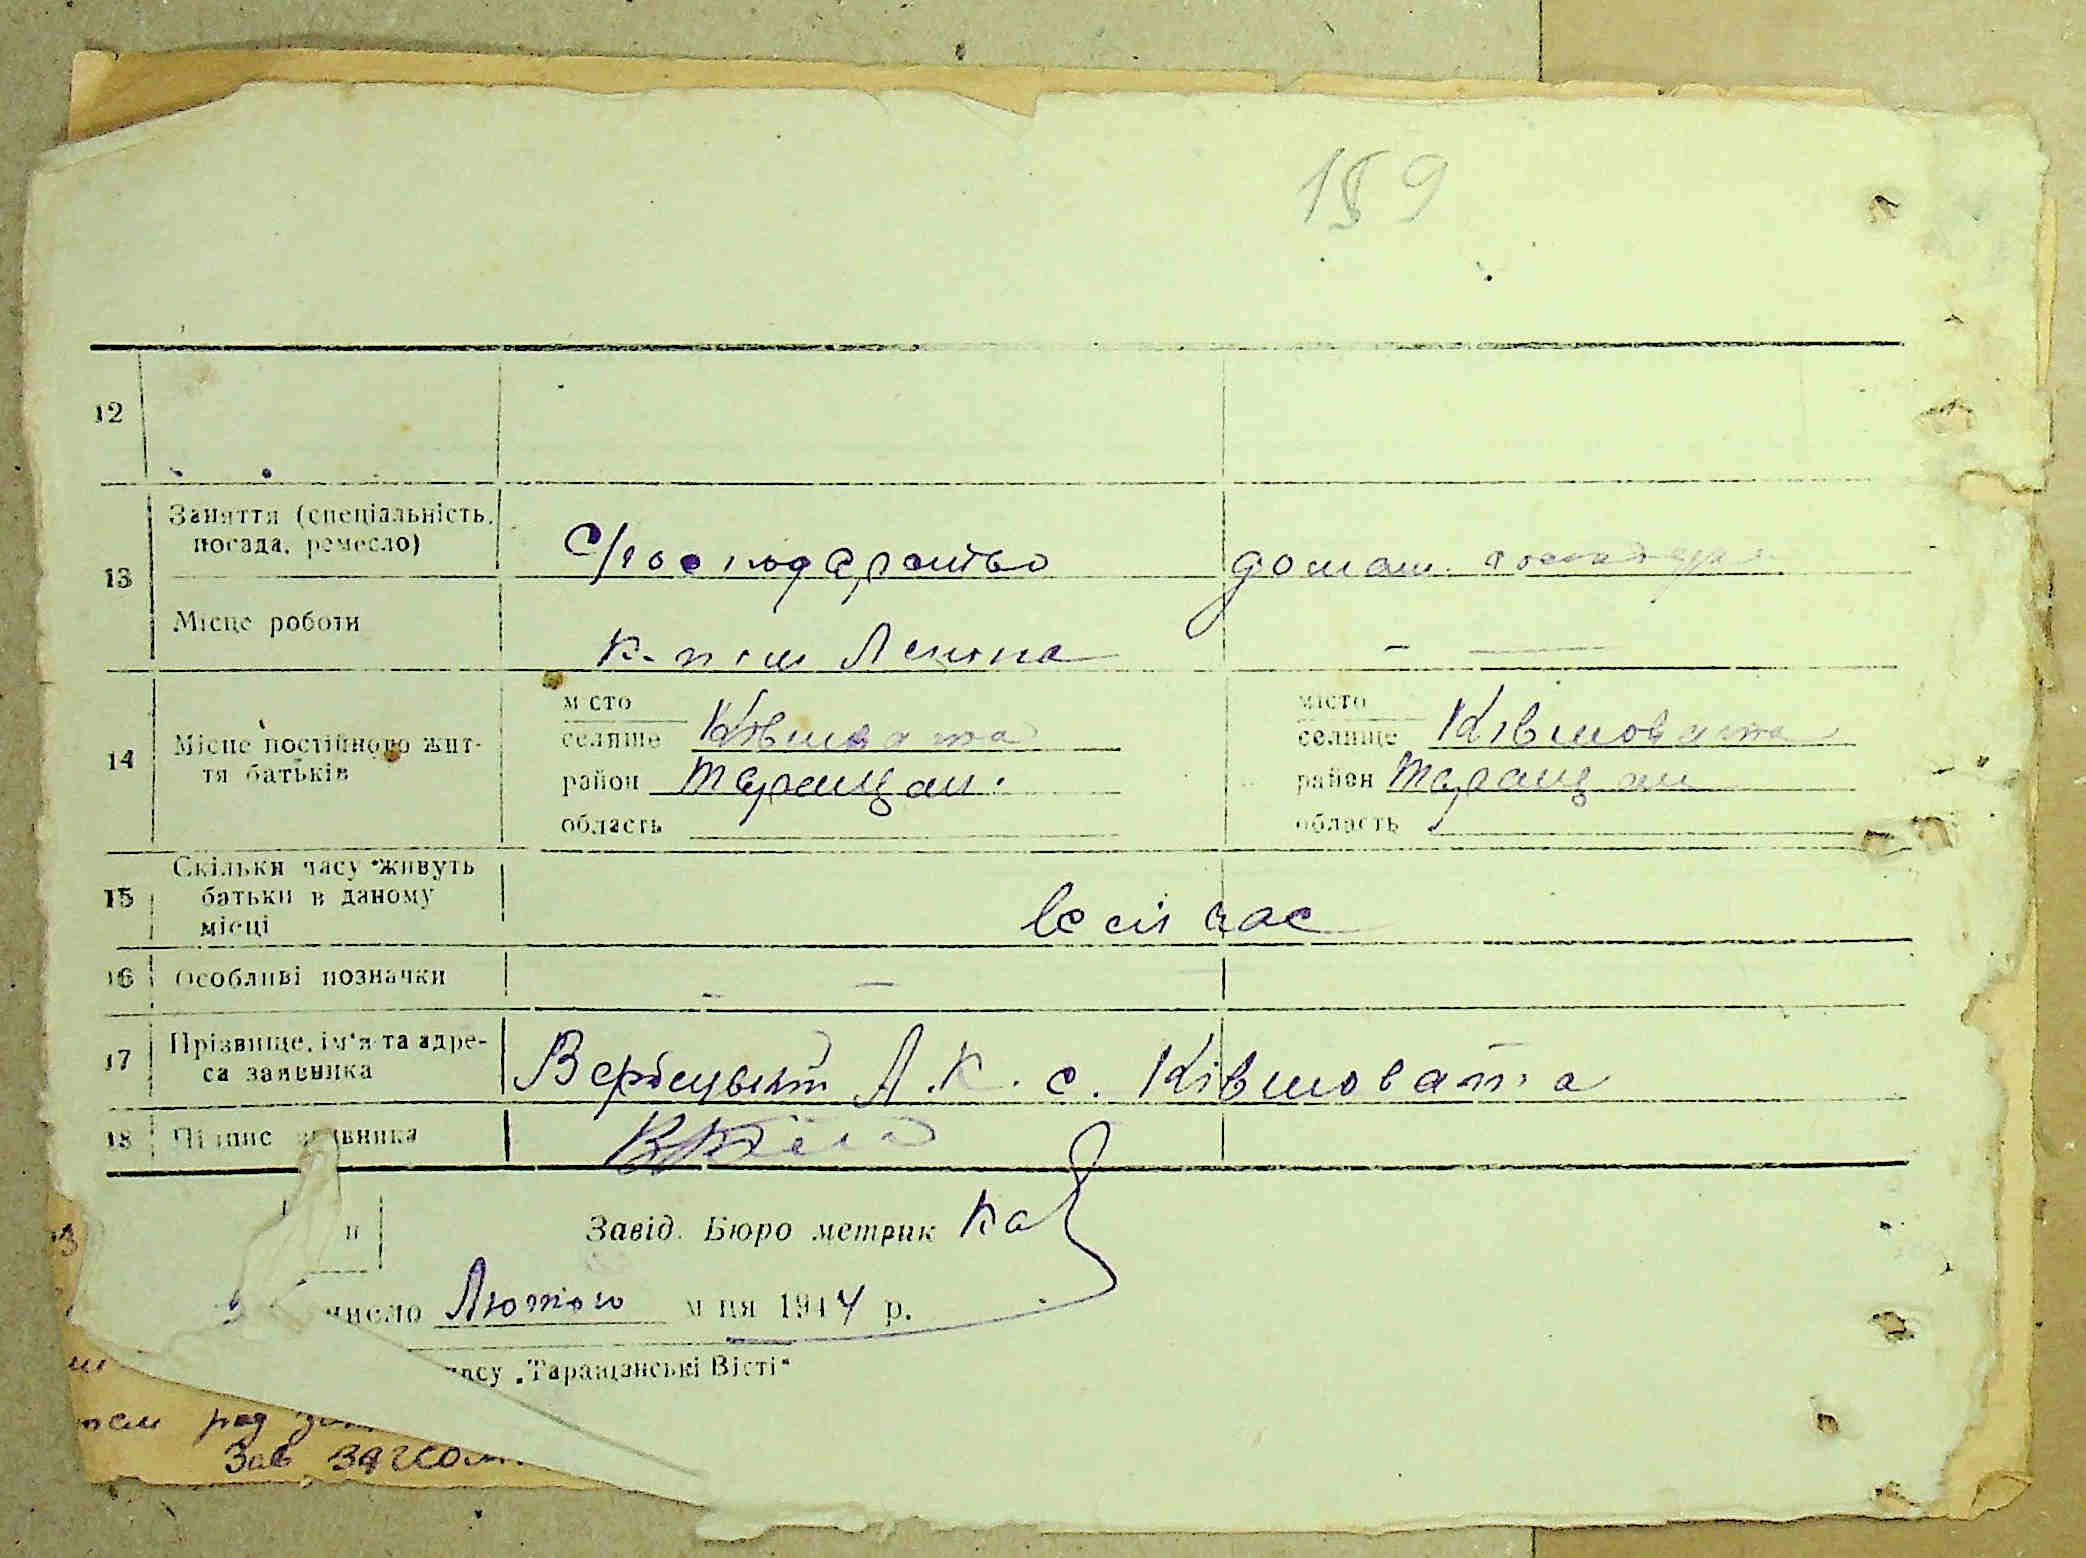 159
12
13 Заняття (спеціальність, посада, ремесло) С/господарство домаш.
Місце роботи к-п ім Леніна — —
14 Місце постійного життя батьків
місто місто
селище Ківшовата селище Ківшовата
район Таращан. район Таращан
область область
15 Скільки часу живуть
батьки в даному
місці весь час
16 Особливі позначки – —
17 Прізвище, ім'я та адре-
са заявника Вербецький Л. К. с. Ківшовата
18 Підпис заявника
Завід. Бюро метрик
число Лютого м ця 1944 р.
„Таращанські Вісті“
рад
Зав.